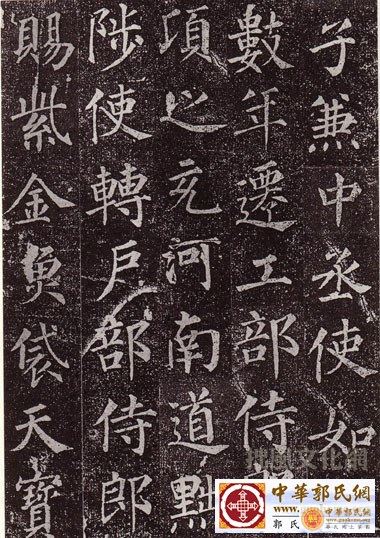 子兼中丞使如
數年遷工部侍
頃之充河南道黜
陟使轉戶部侍郎
賜紫金魚袋天寶
中華郭氏網
www.
郭氏